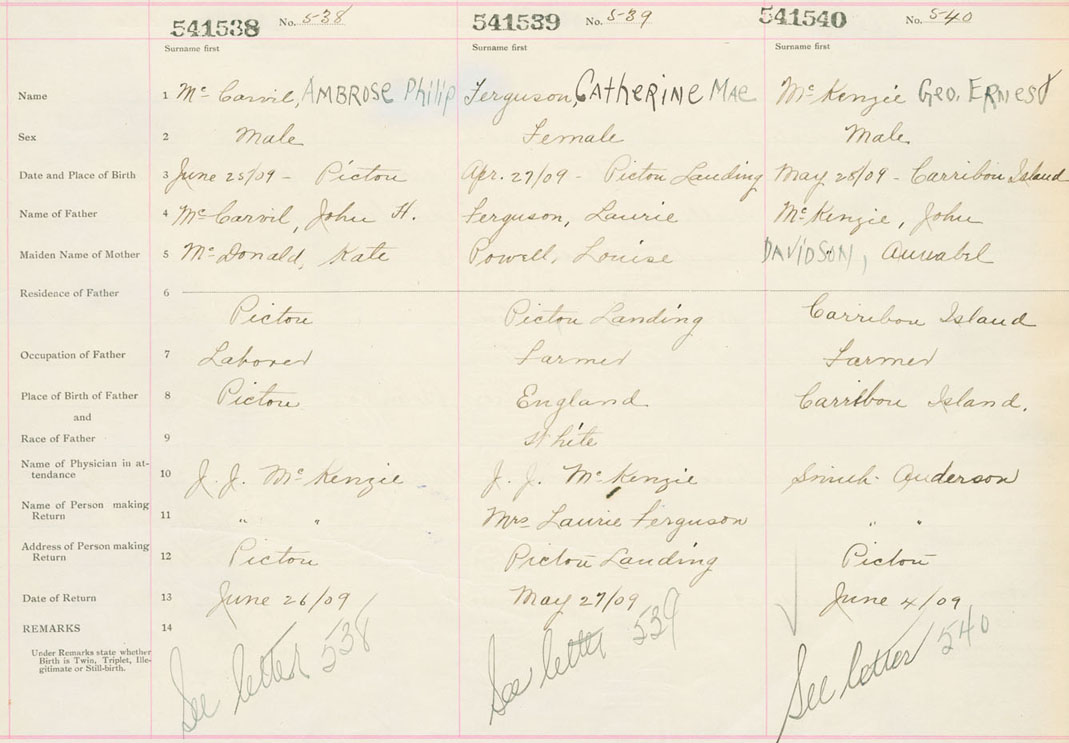 541538 No. 538 541539 No. 539 541540 No. 540
Surname first Surname first Surname first
Name 1 Mc Carvil, AMBROSE Philip Ferguson, CAtHERINE MAE Mc Kenzie GEO. ERNEST
Sex 2 Male Female Male
Date and Place of Birth 3 June 25/09 - Pictou Apr. 27/09 - Pictou Landing May 28/09 - Carribou Island
Name of Father 4 Mc Carvil, John H. Ferguson, Laurie Mc Kenzie, John
Maiden Name of Mother 5 Mc Donald, Kate Powell, Louise DAVIDSON, Annabel
Residence of Father 6
Pictou Pictou Landing Carribou Island
Occupation of Father 7 Laborer Farmer Farmer
Place of Birth of Father 8 Pictou England Carribou Island.
and
Race of Father 9 White
Name of Physician in at-
tendance 10 J. J. Mc Kenzie J. J. Mc Kenzie Anderson
Name of Person making
Return 11 " " Mrs Laurie Ferguson " "
Address of Person making
Return 12 Pictou Pictou Landing Pictou
Date of Return 13 June 26/09 May 27/09 June 4/09
REMARKS 14
Under Remarks state whether
Birth is Twin, Triplet, Ille-
gitimate or Still-birth.
See letter 538 See letter 539 See letter 540